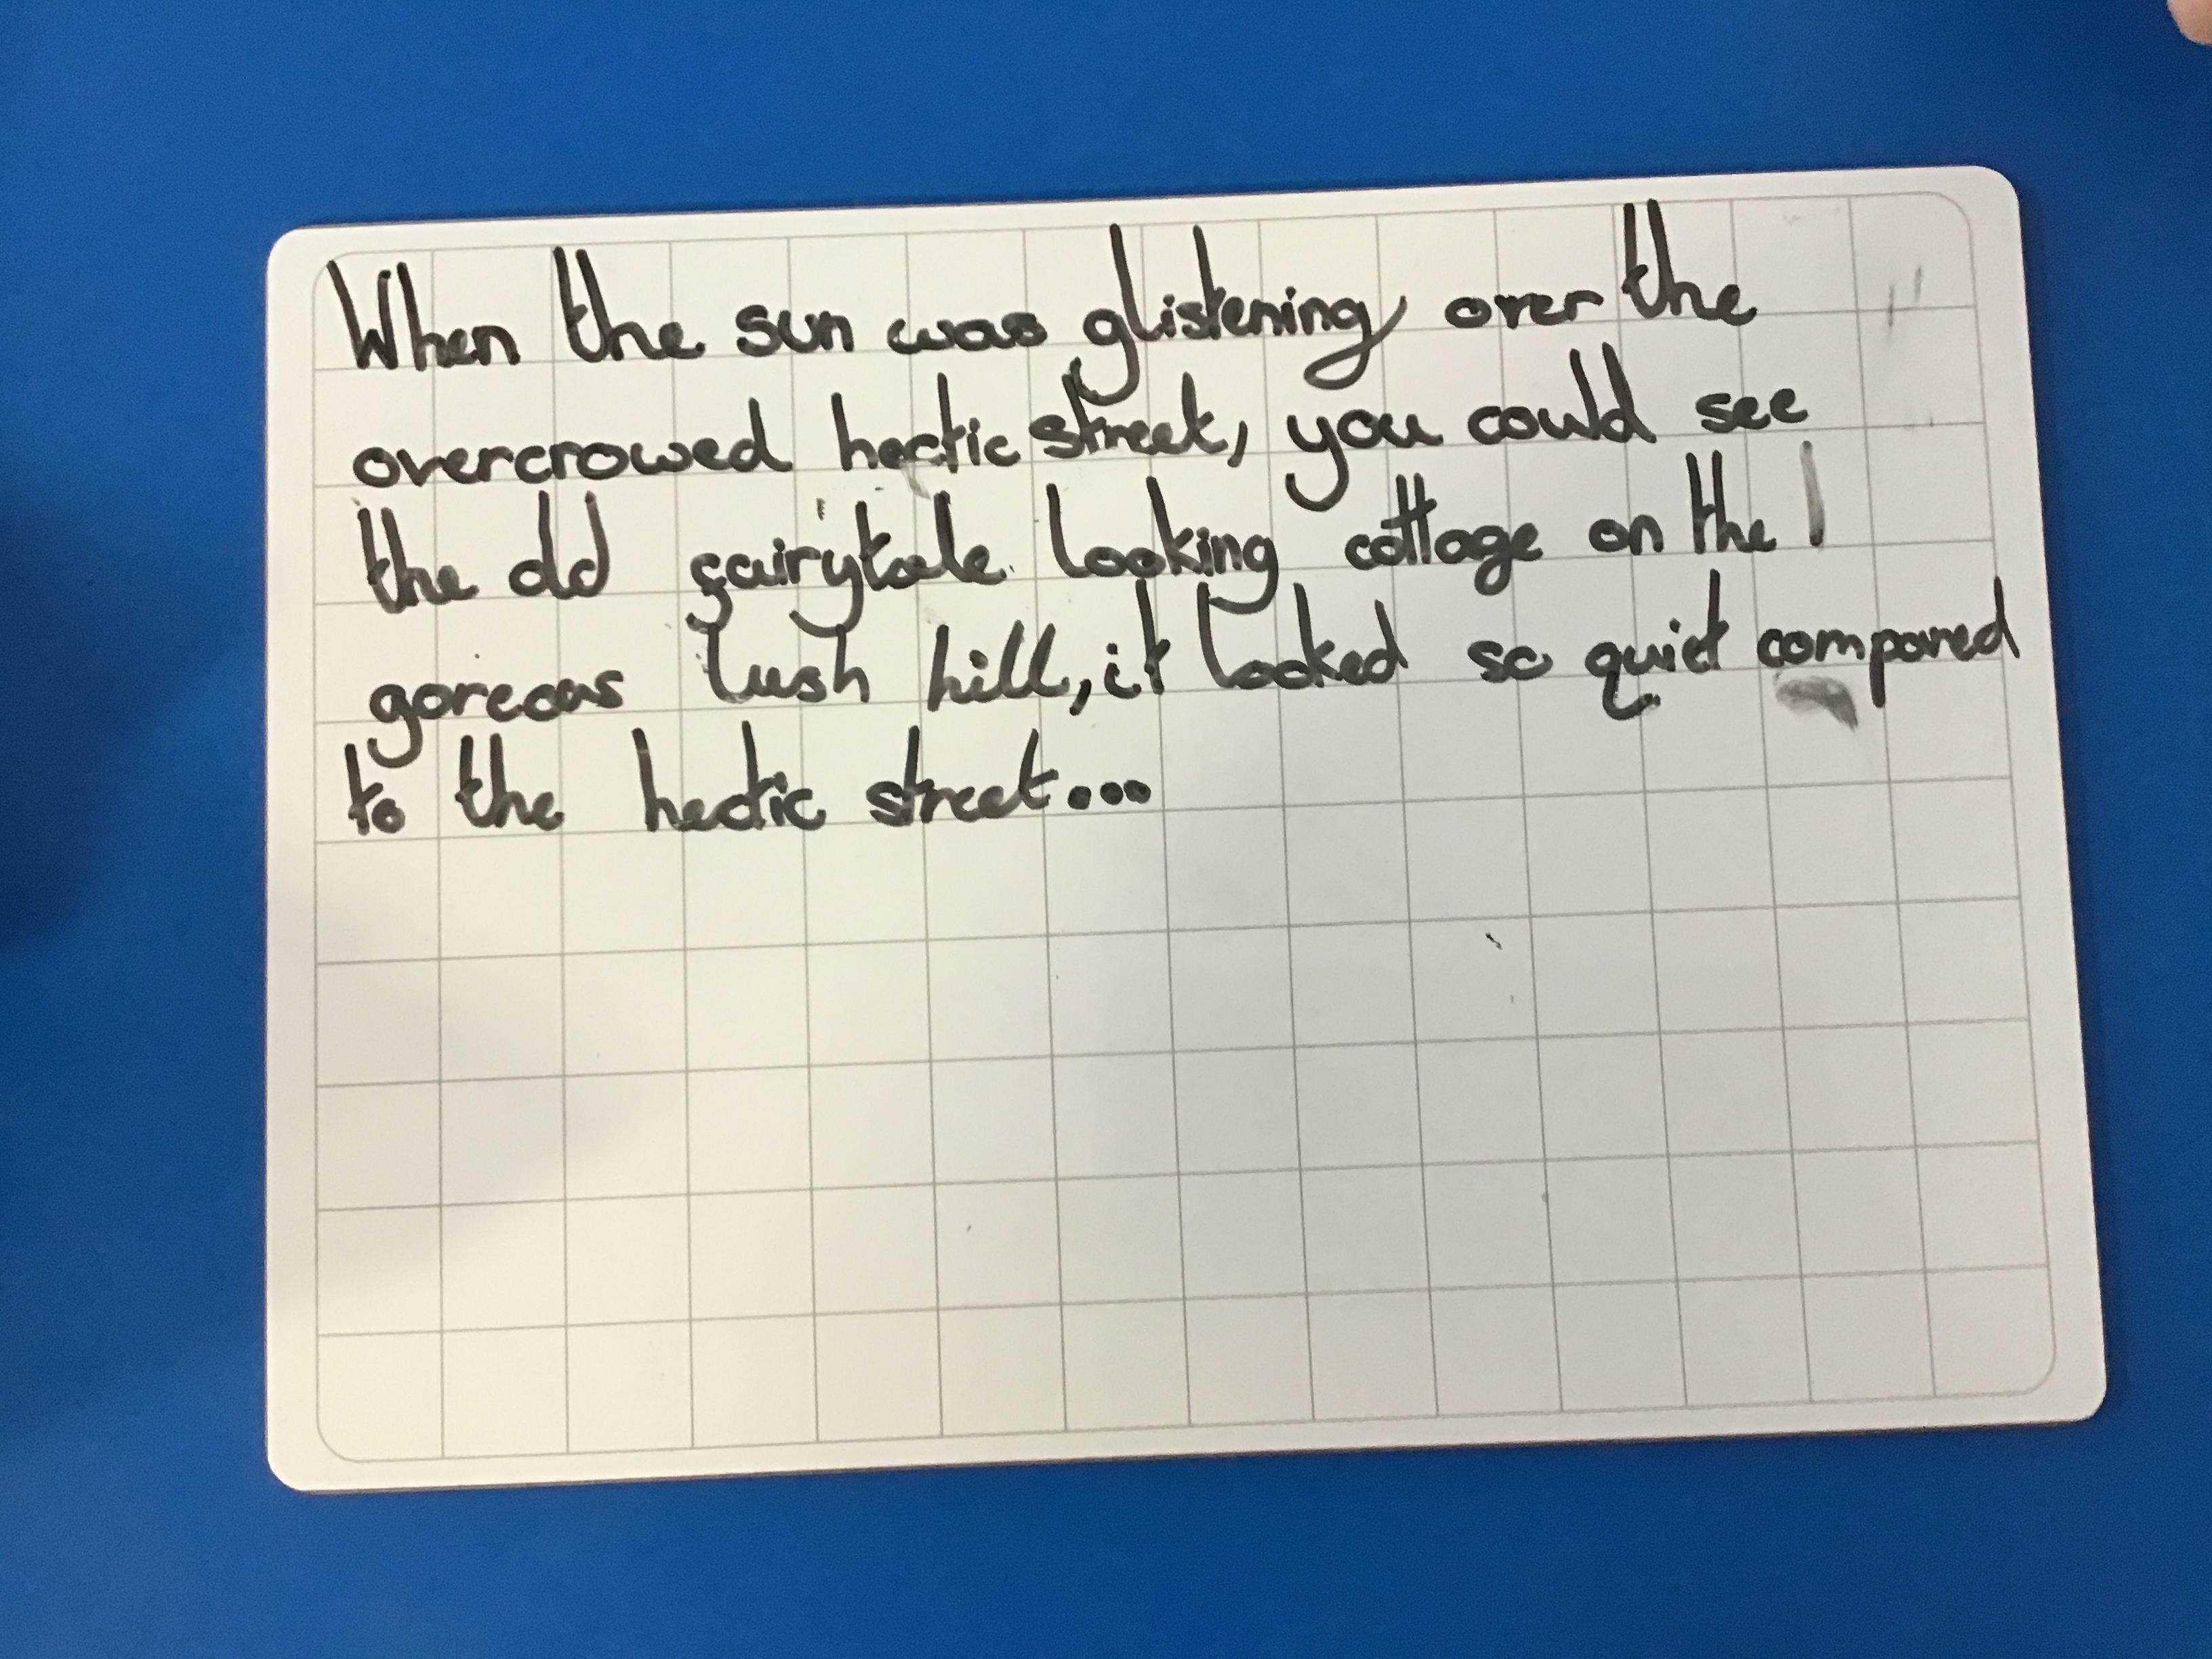 When the sun was glistening over the
overcrowed hectic street, you could see
the old fairytale looking cottage on the
goreous lush hill, it looked so quiet compared
to the hectic street...